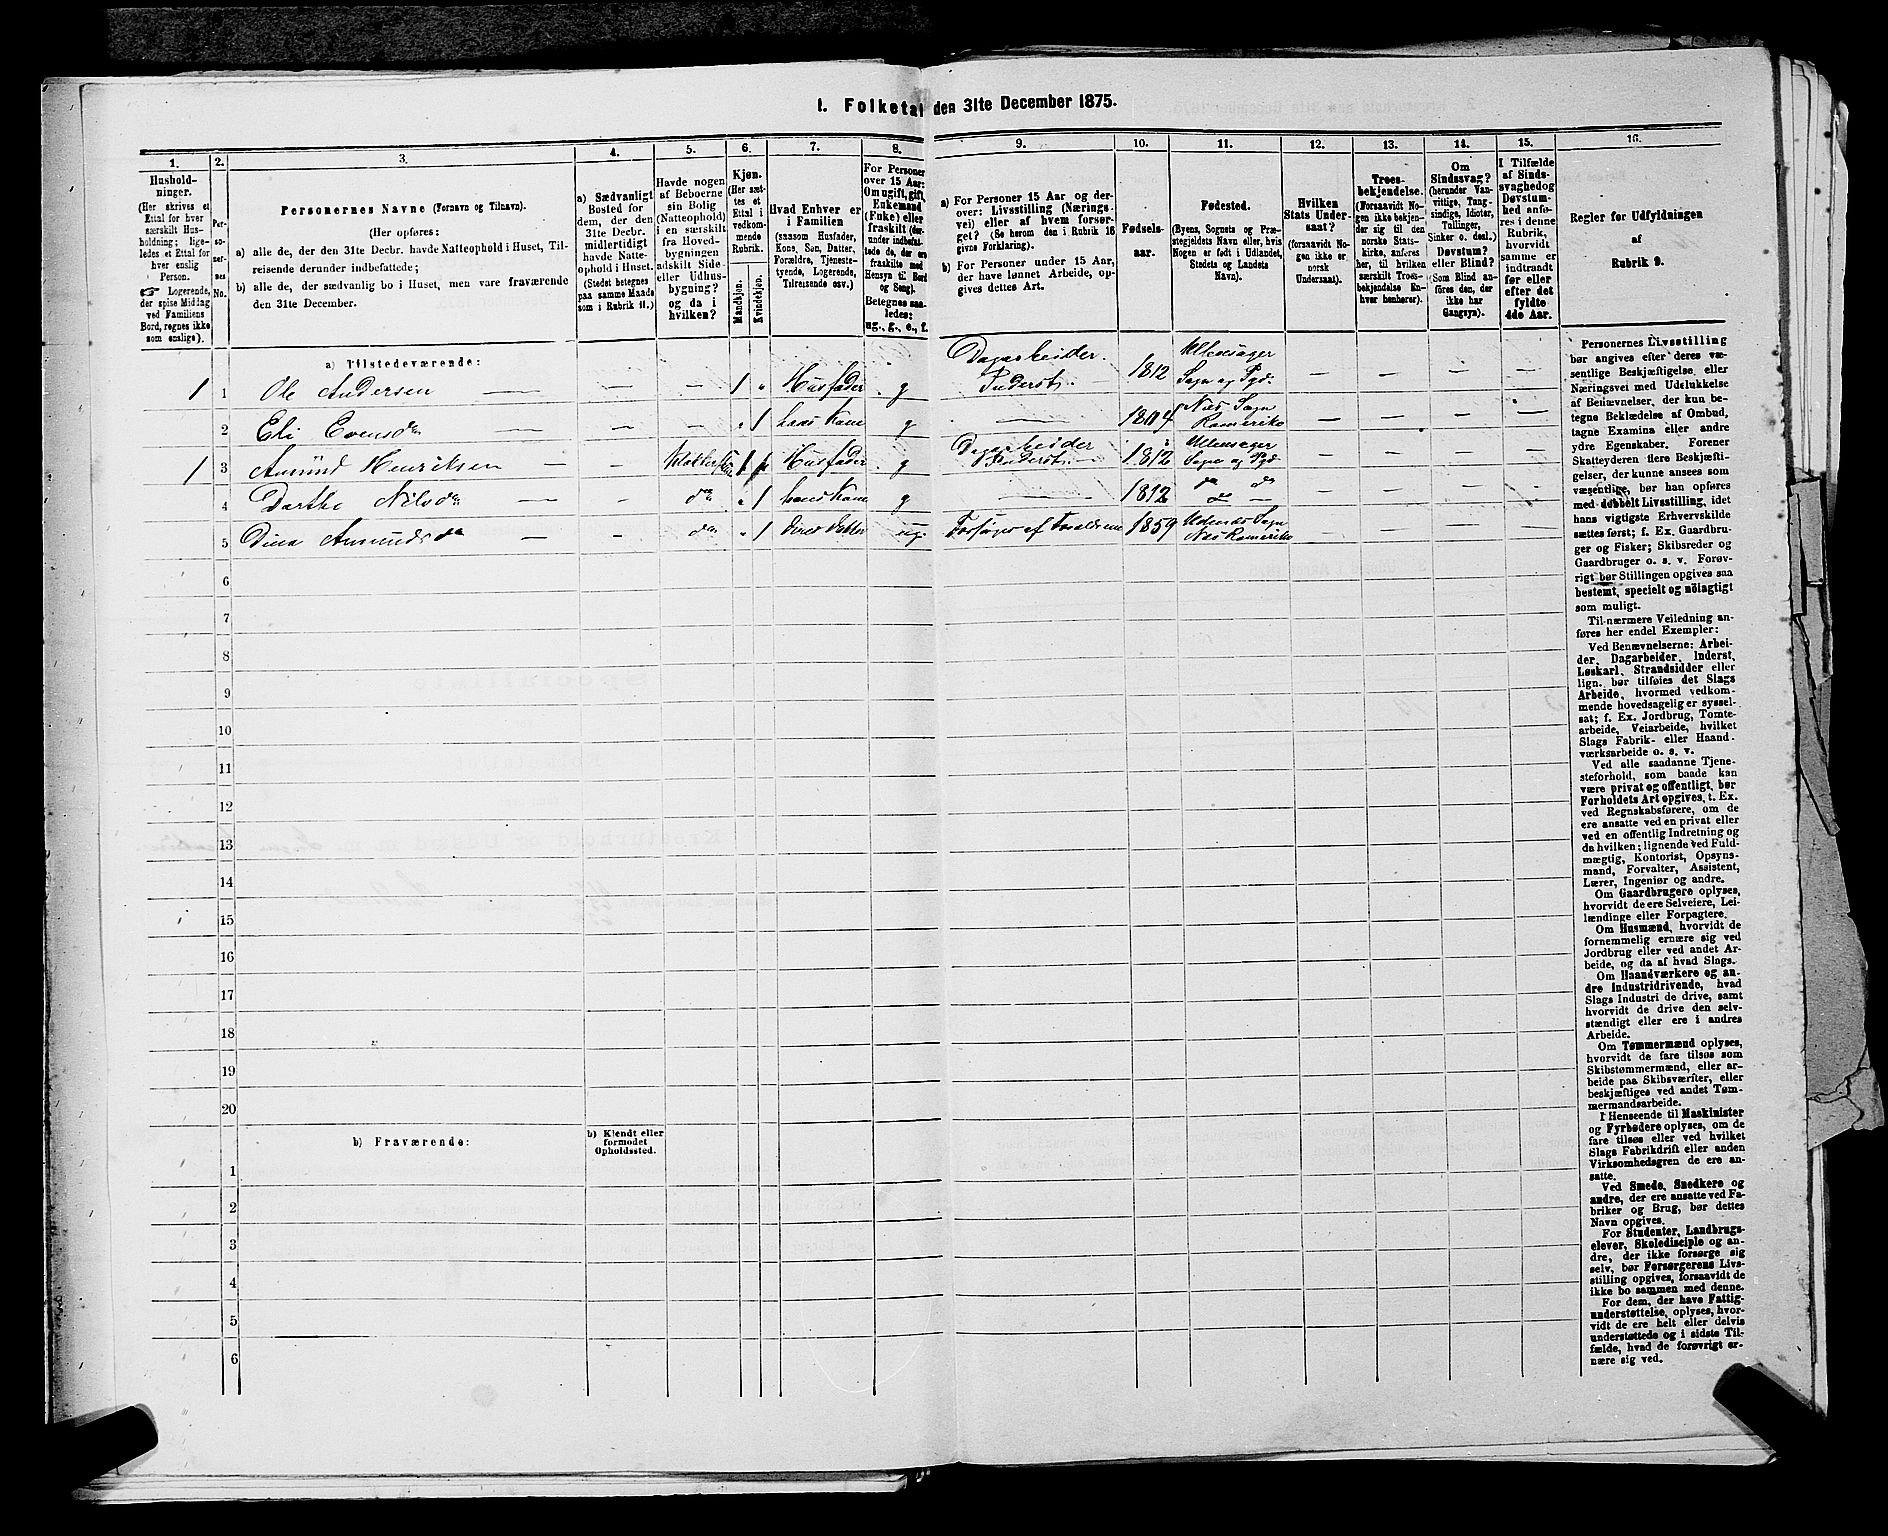 1. Folketal den 31te December 1875.
1.
2.
3.
4.
5.
6.
7.
8.
9.
10.
11.
12.
13.
14.
15.
16.
Husholdninger.
(Her skrives et Ettal for hver særskilt Husholdning; ligeledes et Ettal for hver enslig Person.
Logerende, der spise Middag ved Familiens Bord, regnes ikke som enslige).
Personernes No.
Personernes Navne (Fornavn og Tilnavn).
(Her opføres:
a) alle de, der den 31te Decbr. havde Natteophold i Huset, Tilreisende derunder indbefattede;
b) alle de, der sædvanlig bo i Huset, men vare fraværende den 31te December.
a) Sædvanligt Bosted for dem, der den 31te Decbr. midlertidigt havde Natteophold i Huset.
(Stedet betegnes paa samme Maade som i Rubrik 11.)
Havde nogen af Beboerne sin Bolig (Natteophold) i en særskilt fra Hovedbygningen adskilt Side- eller Udhusbygning? og da i hvilken?
Kjøn.
(Her sættes et Ettal i vedkommende Rubrik.
Mandkjøn.
Kvindekjøn.
Hvad Enhver er i Familien
(saasom Husfader, Kone, Søn, Datter, Forældre, Tjenestetyende, Logerende, Tilreisende osv.)
For Personer over 15 Aar: Om ugift, gift, Enkemand (Enke) eller fraskilt (derunder indbefattede de, der ere fraskilte med Hensyn til Bord og Seng).
Betegnes saaledes: ug., g., e., f.
a) For Personer 15 Aar og derover: Livsstilling (Næringsvei) eller af hvem forsørget? (Se herom den i Rubrik 16 givne Forklaring).
b) For Personer under 15 Aar, der have lønnet Arbeide, opgives dettes Art.
Fødselsaar.
Fødested.
(Byens, Sognets og Præstegjeldets Navn eller, hvis Nogen er født i Udlandet, Stedets og Landets Navn).
Hvilken Stats Undersaat?
(forsaavidt Nogen ikke er norsk Undersaat).
Troesbekjendelse.
(Forsaavidt Nogen ikke bekjender sig til den norske Statskirke, anføres her, til hvilken særskilt Troesbekjendelse Enhver henhører).
Om Sindssvag? (herunder Vanvittige, Tungsindige, Idioter, Tullinger, Sinker o. desl.) Døvstum? eller Blind? (Som Blind anføres den, der ikke har Gangsyn).
I Tilfælde af Sindssvaghed og Døvstumhed anføres i denne Rubrik, hvorvidt samme er indtraadt før eller efter det fyldte 4de Aar.
Regler for Udfyldningen af Rubrik 9.
a) Tilstedeværende:
1 1 Ole Andersen — — — 1 " Husfader g Dagarbeider Inderst. 1812 Ullensager Sogn og Pgd. — — — —
2 Eli Evensdr — — " 1 hans Kone g — 1804 Næs Sogn Romerike — — — —
1 3 Amund Henriksen — — 1 Husfader g Dagarbeider Inderst. 1812 Ullensager Sogn og Pgd. — — — —
4 Dorthe Nilsdr — — do " 1 hans Kone g — 1812 do do — — — —
5 Dina Amundsdr — — do " 1 deres Datter ug. Forsørges af Forældrene 1859 Udenæs Sogn Næs Romerike — — — —
6
7
8
9
10
11
12
13
14
15
16
17
18
19
20
b) Fraværende:
b) Kjendt eller formodet Opholdssted.
1
2
3
4
5
6
Personernes Livsstilling
bør angives efter deres væ-
sentlige Beskjæftigelse, eller
Næringsvei med Udelukkelse
af Benævnelser, der kun be-
tegne Beklædelse af Ombud,
tagne Examina eller andre
ydre Egenskaber. Forener
Skatteyderen flere Beskjæfti-
gelser, der kunne ansees som
væsentlige, bør han opføres
med dobbelt Livsstilling, idet
hans vigtigste Erhvervskilde
sættes først; f. Ex. Gaardbru-
ger og Fisker; Skibsreder og
Gaardbruger o. s. v. Forøv-
rigt bør Stillingen opgives saa
bestemt, specielt og nöiagtigt
som muligt.
Til nærmere Veiledning an-
føres her endel Exempler:
Ved Benævnelserne: Arbei-
der, Dagarbeider, Inderst,
Løskarl, Strandsidder eller
lign. bør tilføies det Slags
Arbeide, hvormed vedkom-
mende hovedsagelig er syssel-
sat; f. Ex. Jordbrug, Tomte-
arbeide, Veiarbeide, hvilket
Slags Fabrik- eller Haand-
værksarbeide o. s. v.
Ved alle saadanne Tjene-
steforhold, som baade kan
være privat og offentligt, bør
Forholdets Art opgives, t. Ex.
ved Regnskabsførere, om de
ere ansatte ved en privat eller
ved en offentlig Indretning og
da hvilken; lignende ved Fuld-
mægtig, Kontorist, Opsyns-
mand, Forvalter, Assistent,
Lærer, Ingeniør og andre.
Om Gaardbrugere oplyses,
hvorvidt de ere Selveiere, Lei-
lændinge eller Forpagtere.
Om Husmænd, hvorvidt de
fornemmelig ernære sig ved
Jordbrug eller ved andet Ar-
beide, og da af hvad Slags.
Om Haandværkere og an-
dre Industridrivende, hvad
Slags Industri de drive, samt
hvorvidt de drive den selv-
stændigt eller ere i andres
Arbeide.
Om Tømmermænd oplyses,
hvorvidt de fare tilsøs som
Skibstømmermænd, eller ar-
beide paa Skibsværfter, eller
beskjæftiges ved andet Tøm-
mermandsarbeide.
I Henseende til Maskinister
og Fyrbødere oplyses, om de
fare tilsøs eller ved hvilket
Slags Fabrikdrift eller anden
Virksomhedsgren de ere an-
satte.
Ved Smede, Snedkere og
andre, der ere ansatte ved Fa-
briker og Brug, bør dettes
Navn opgives.
For Studenter, Landbrugs-
elever, Skoledisciple og an-
dre, der ikke forsørge sig
selv, bør Forsørgerens Livs-
stilling opgives, forsaavidt de
ikke bo sammen med denne.
For dem, der have Fattig-
understøttelse, oplyses, hvor-
vidt de ere helt eller delvis
understøttede og i sidste Til-
fælde, hvad de forøvrigt er-
nære sig ved.